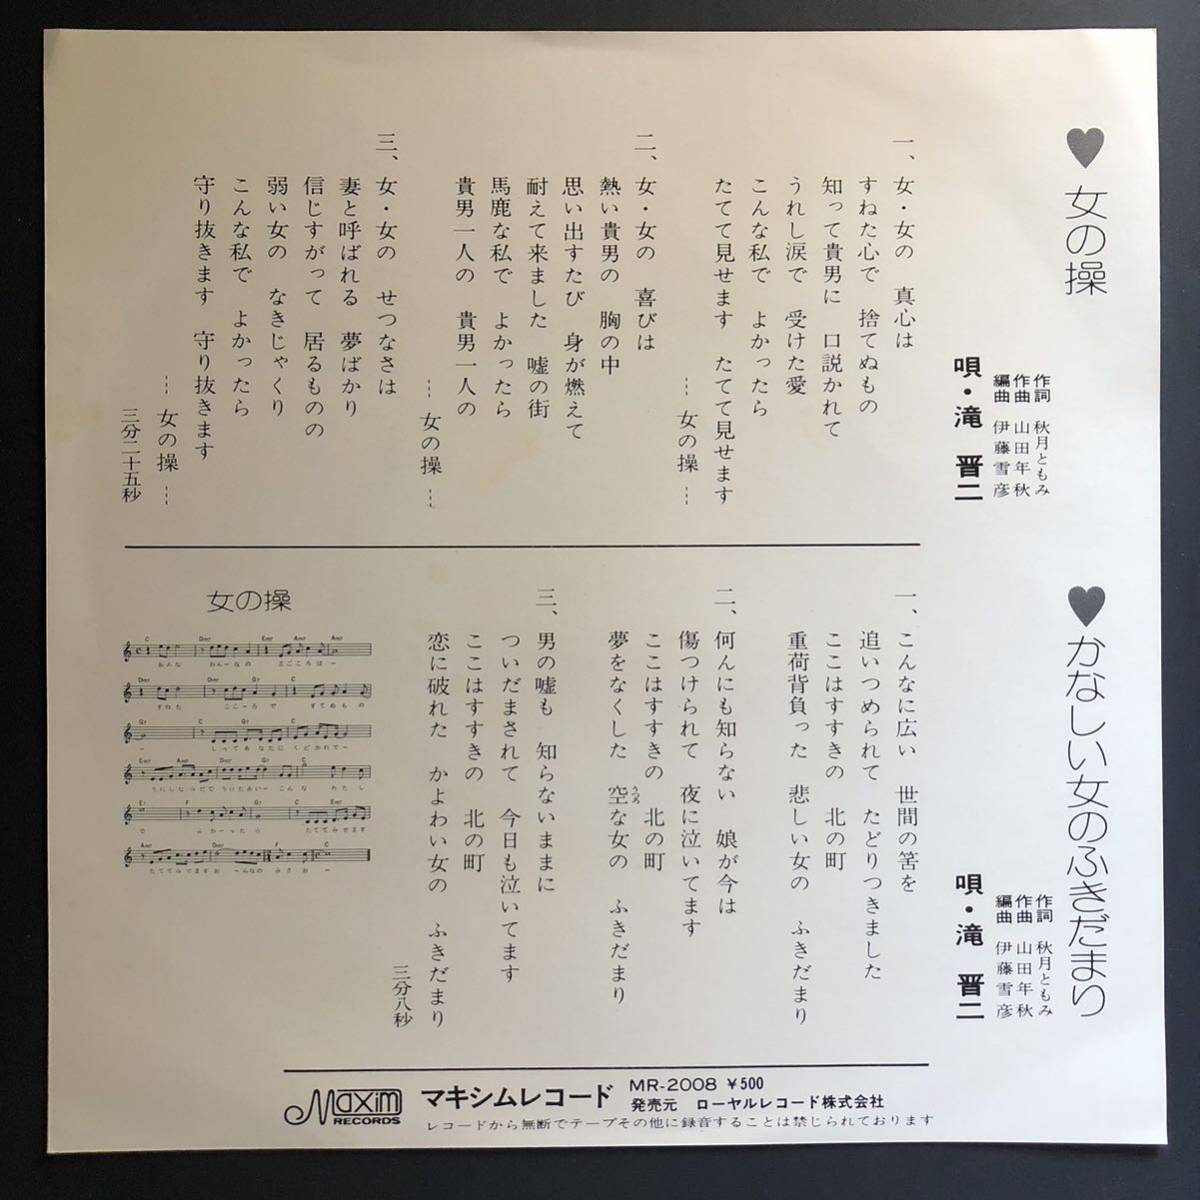 ♥ 女の操
作詞 秋月ともみ
作曲 山田年秋
編曲 伊藤雪彦
唄・滝 晋二
一、女・女の 真心は
すねた心で 捨てぬもの
知って貴男に 口説かれて
うれし涙で 受けた愛
こんな私で よかったら
たてて見せます たてて見せます
… 女の操 …
二、女・女の 喜びは
熱い貴男の 胸の中
思い出すたび 身が燃えて
耐えて来ました 嘘の街
馬鹿な私で よかったら
貴男一人の 貴男一人の
… 女の操 …
三、女・女の せつなさは
妻と呼ばれる 夢ばかり
信じすがって 居るものの
弱い女の なきじゃくり
こんな私で よかったら
守り抜きます 守り抜きます
… 女の操 …
三分二十五秒
♥ かなしい女のふきだまり
作詞 秋月ともみ
作曲 山田年秋
編曲 伊藤雪彦
唄・滝 晋二
一、こんなに広い 世間の筈を
追いつめられて たどりつきました
ここはすすきの 北の町
重荷背負った 悲しい女の ふきだまり
二、何んにも知らない 娘が今は
傷つけられて 夜に泣いてます
ここはすすきの 北の町
夢をなくした 空な女の ふきだまり
うつろ
三、男の嘘も 知らないままに
ついだまされて 今日も泣いてます
ここはすすきの 北の町
恋に破れた かよわい女の ふきだまり
三分八秒
女の操
C Dm7 Em7 Am7 Am7
おんな おんーなの まごころはー
Dm7 Dm7 G7 C
すねた こころで すてぬもの
G7 C G7 C
ー しってあなたに くどかれてー
Em7 Am7 Dm7 G7 C
E7 F G7 C Em7
たててみせます
Am7 Dm7 F C
Maxim RECORDS
マキシムレコード
MR-2008 ¥500
発売元 ローヤルレコード株式会社
レコードから無断でテープその他に録音することは禁じられております